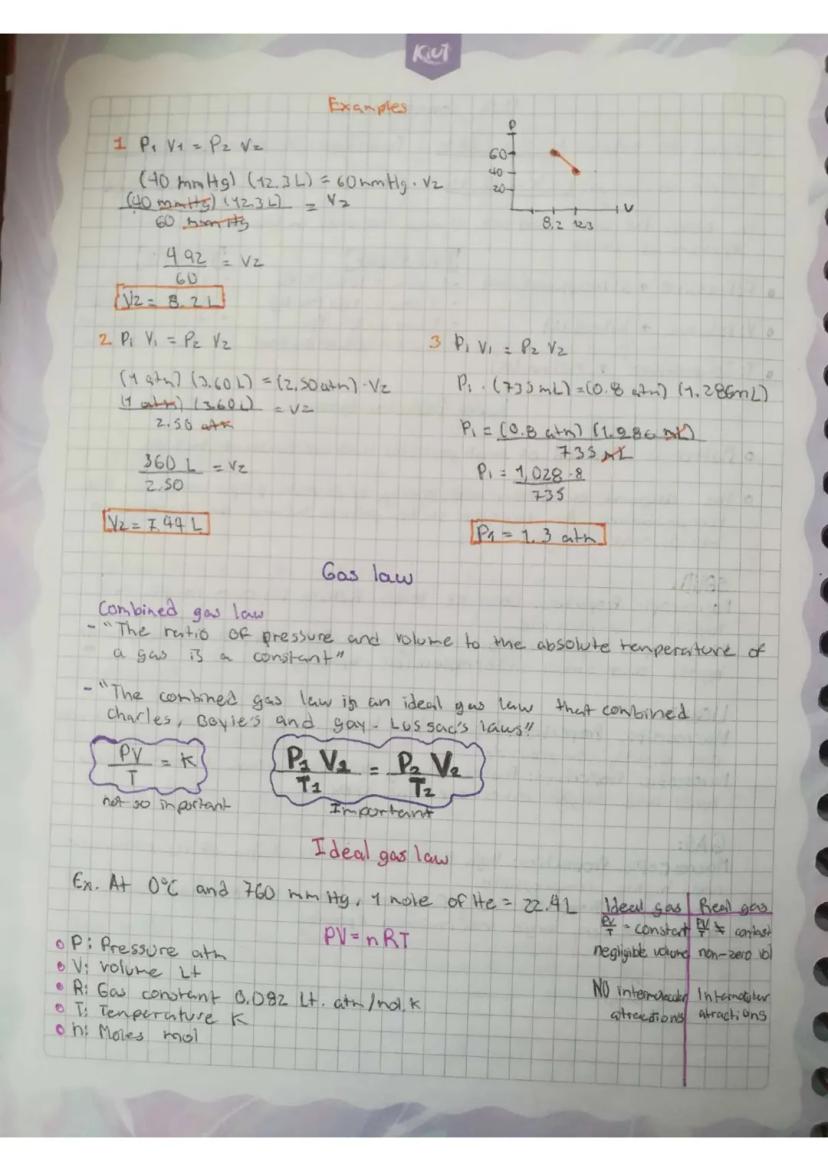 KiUT
Examples
1 P₁ V₁ = P₂ V₂
(40 mmHg) (12.3 L) = 60 mmHg · V₂
(40 mmHg) (12.3 L) = V₂
60 mmHg
492 = V₂
60
V₂ = 8.2 L
P
60
40
20
V
8,2 12.3
2 P₁ V₁ = P₂ V₂
(1 atm) (3.60 L) = (2.50 atm) · V₂
(1 atm) (3.60L) = V₂
2.50 atm
360 L = V₂
2.50
V₂ = 1.44 L
3 P₁ V₁ = P₂ V₂
P₁ · (735 mL) = (0.8 atm) (1.286mL)
P₁ = (0.8 atm) (1.286 mL)
735 mL
P₁ = 1,028.8
735
P₁ = 1.3 atm
Gas law
Combined gas law
- "The ratio of pressure and volume to the absolute temperature of
a gas is a constant"
- "The combined gas law is an ideal gas law that combined
Charles, Boyle's and gay-Lussac's laws"
PV = K
T
not so important
P₁ V₁ = P₂ V₂
T₁ T₂
Important
Ideal gas law
Ex. At 0°C and 760 mmHg, 1 mole of He = 22.4L
PV = nRT
• P: Pressure atm
• V: Volume Lt
• R: Gas constant 0.082 Lt. atm/mol.k
• T: Temperature K
• n: Moles mol
Ideal gas | Real gas
PV = constant | PV ≠
T | T
negligible volume | non-zero vol
NO intermolecular | Intermolular
attractions | atractions